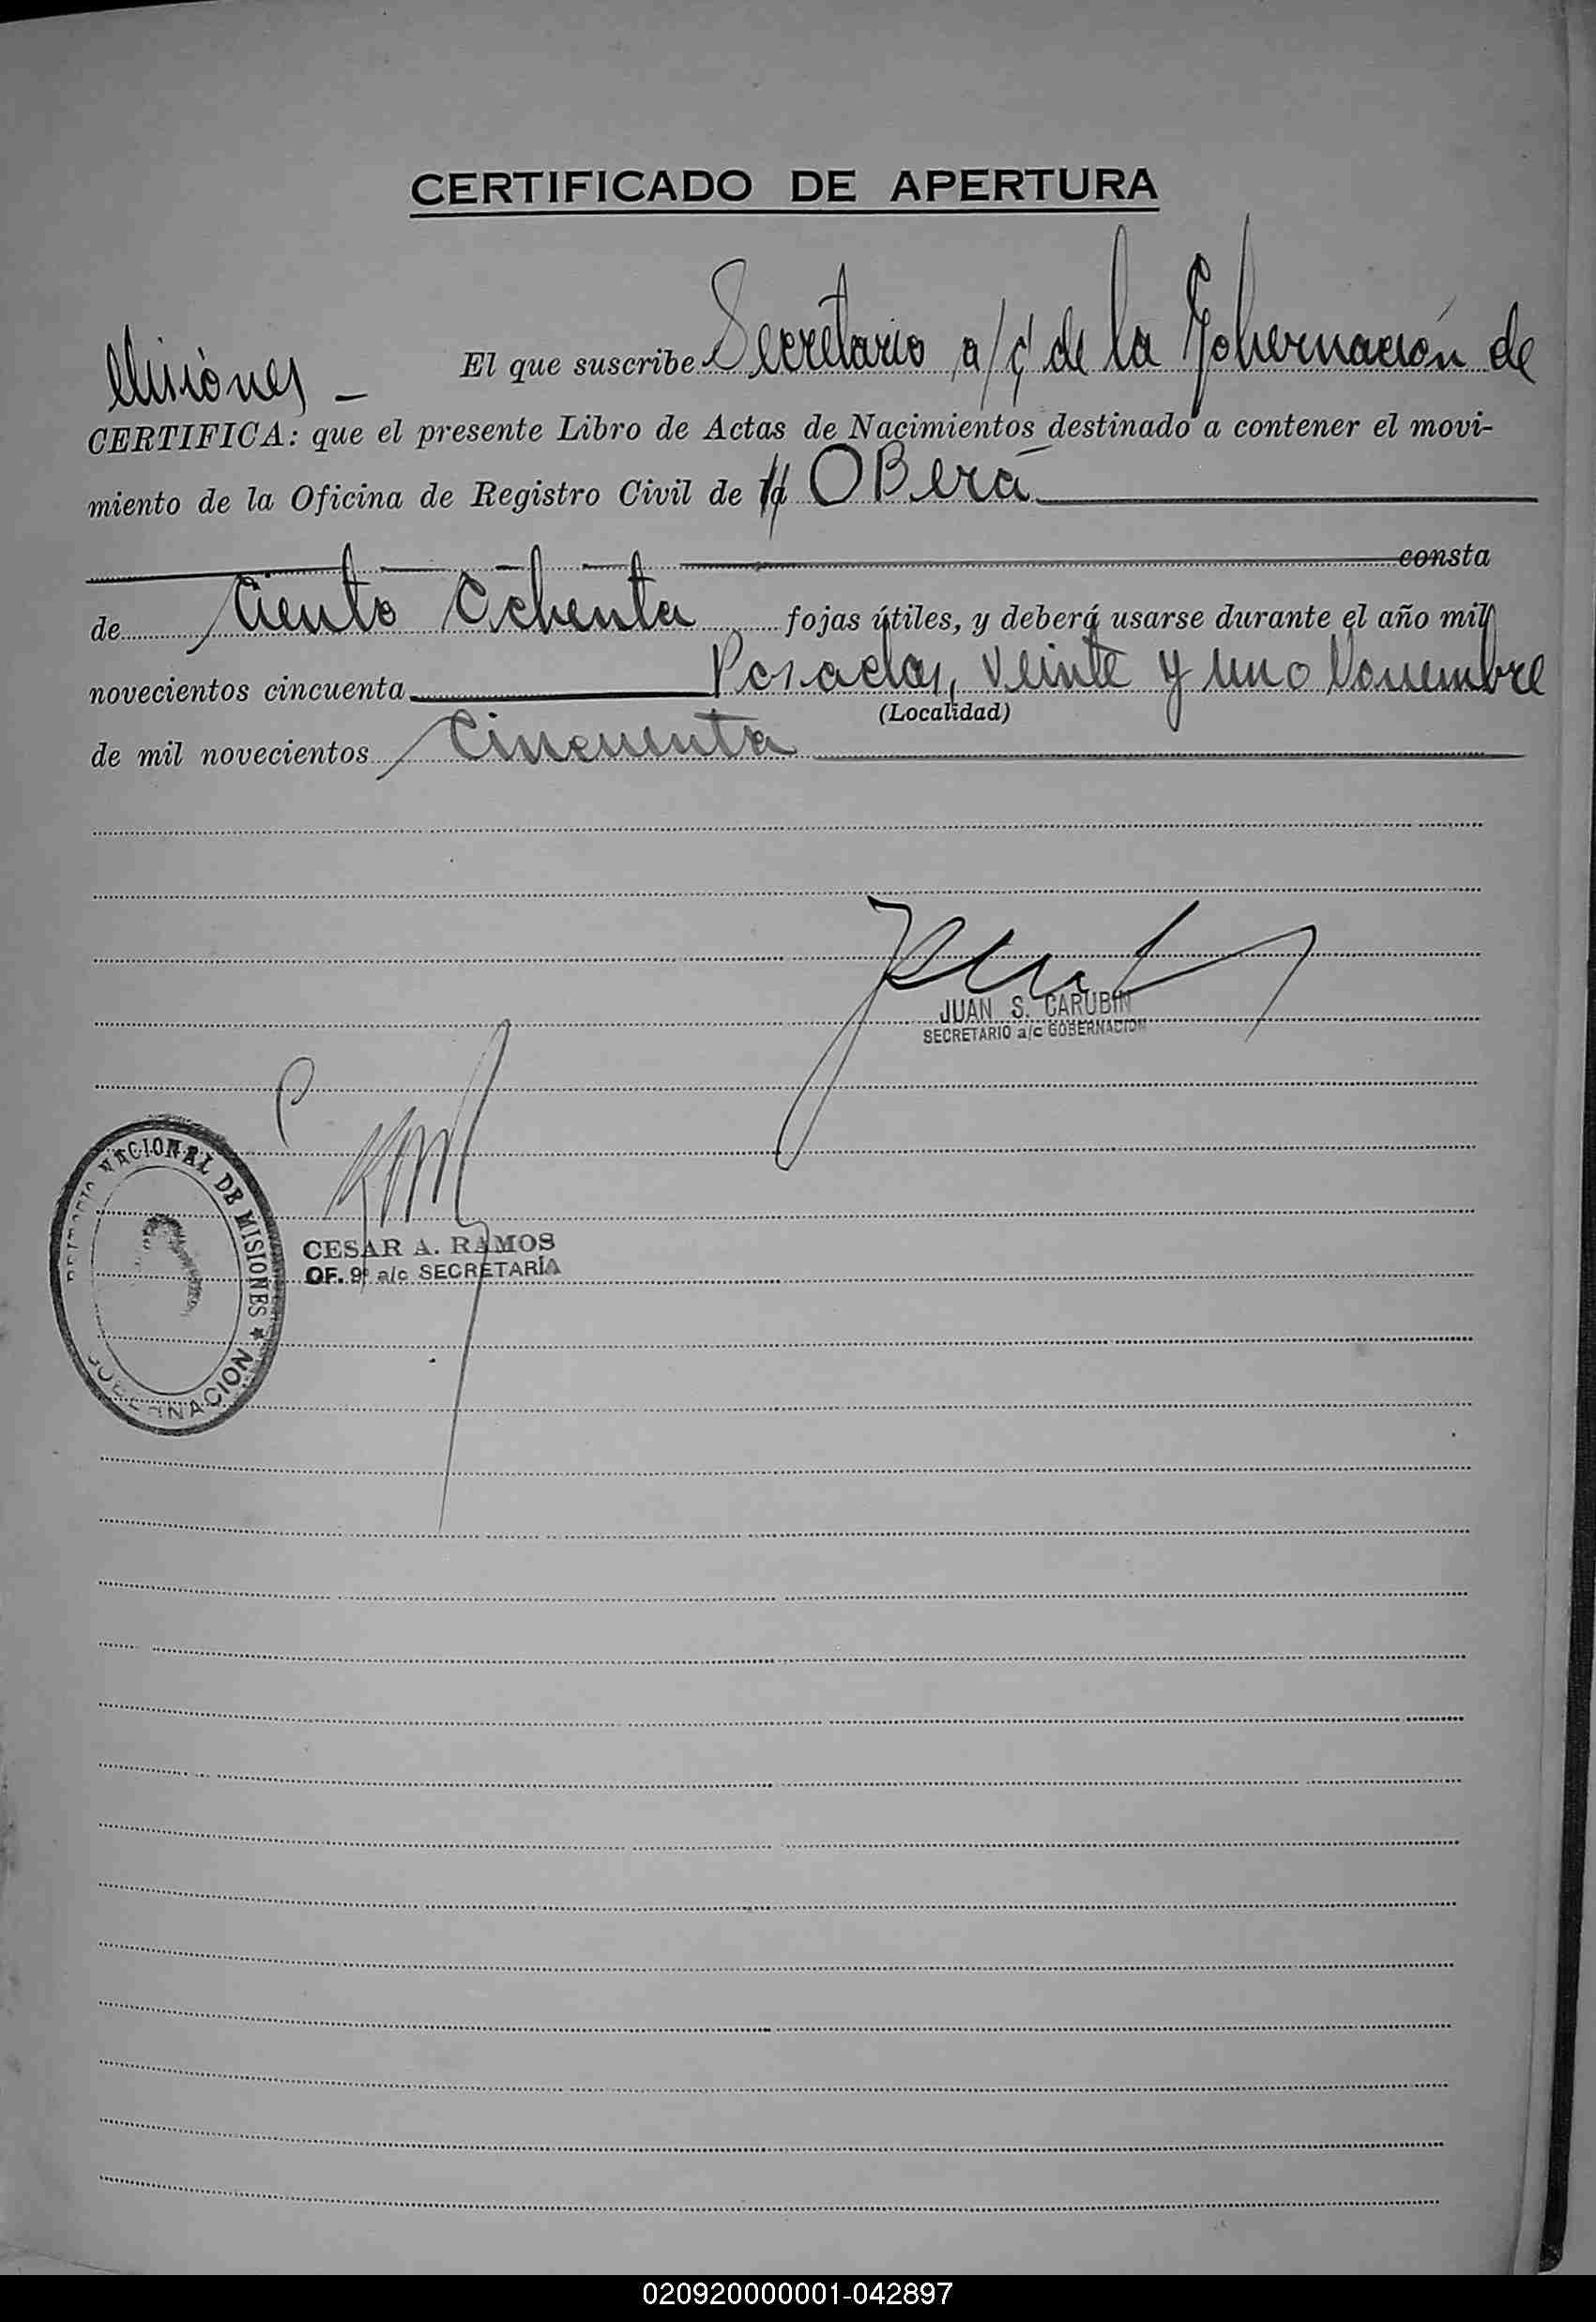 CERTIFICADO DE APERTURA
El que suscribe Secretario a/c de la Gobernación de
Misiones -
CERTIFICA: que el presente Libro de Actas de Nacimientos destinado a contener el movi-
miento de la Oficina de Registro Civil de OBerá
consta
de Ciento Ochenta fojas útiles, y deberá usarse durante el año mil
novecientos cincuenta Posadas, veinte y uno Novembre
(Localidad)
de mil novecientos Cincuenta
JUAN S. CARUBIN
SECRETARIO a/c GOBERNACION
NACIONAL DE MISIONES
GOBERNACION
CESAR A. RAMOS
OF. 9º a/c SECRETARÍA
020920000001-042897